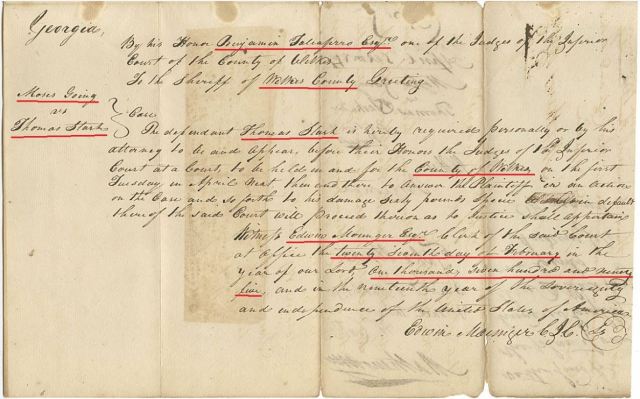 Georgia,
By his Honor Benjamin Taliaferro Esqr. one of the Judges of the Inferior
Court of the County of Wilkes
To the Sheriff of Wilkes County Greeting
Moses Going
vs
Thomas Stark
Case
The defendant Thomas Stark is hereby required personally or by his
attorney to be and appear, before their Honors the Judges of the Inferior
Court at a Court, to be held in and for the County of Wilkes on the first
Tuesday in April next, then and there to answer the Plaintiff in an action
on the Case and so forth to his damage Sixty pounds Specie in default
there of the said Court will proceed thereon as to Justice shall appertain
Witness Edwin Mounger Esqr. Clerk of the said Court
at office the twenty day of February in the
year of our Lord One thousand, Seven hundred and ninety
five, and in the nineteenth year of the Sovereignty
and independence of the United States of America
Edwin Mounger C.I.C.